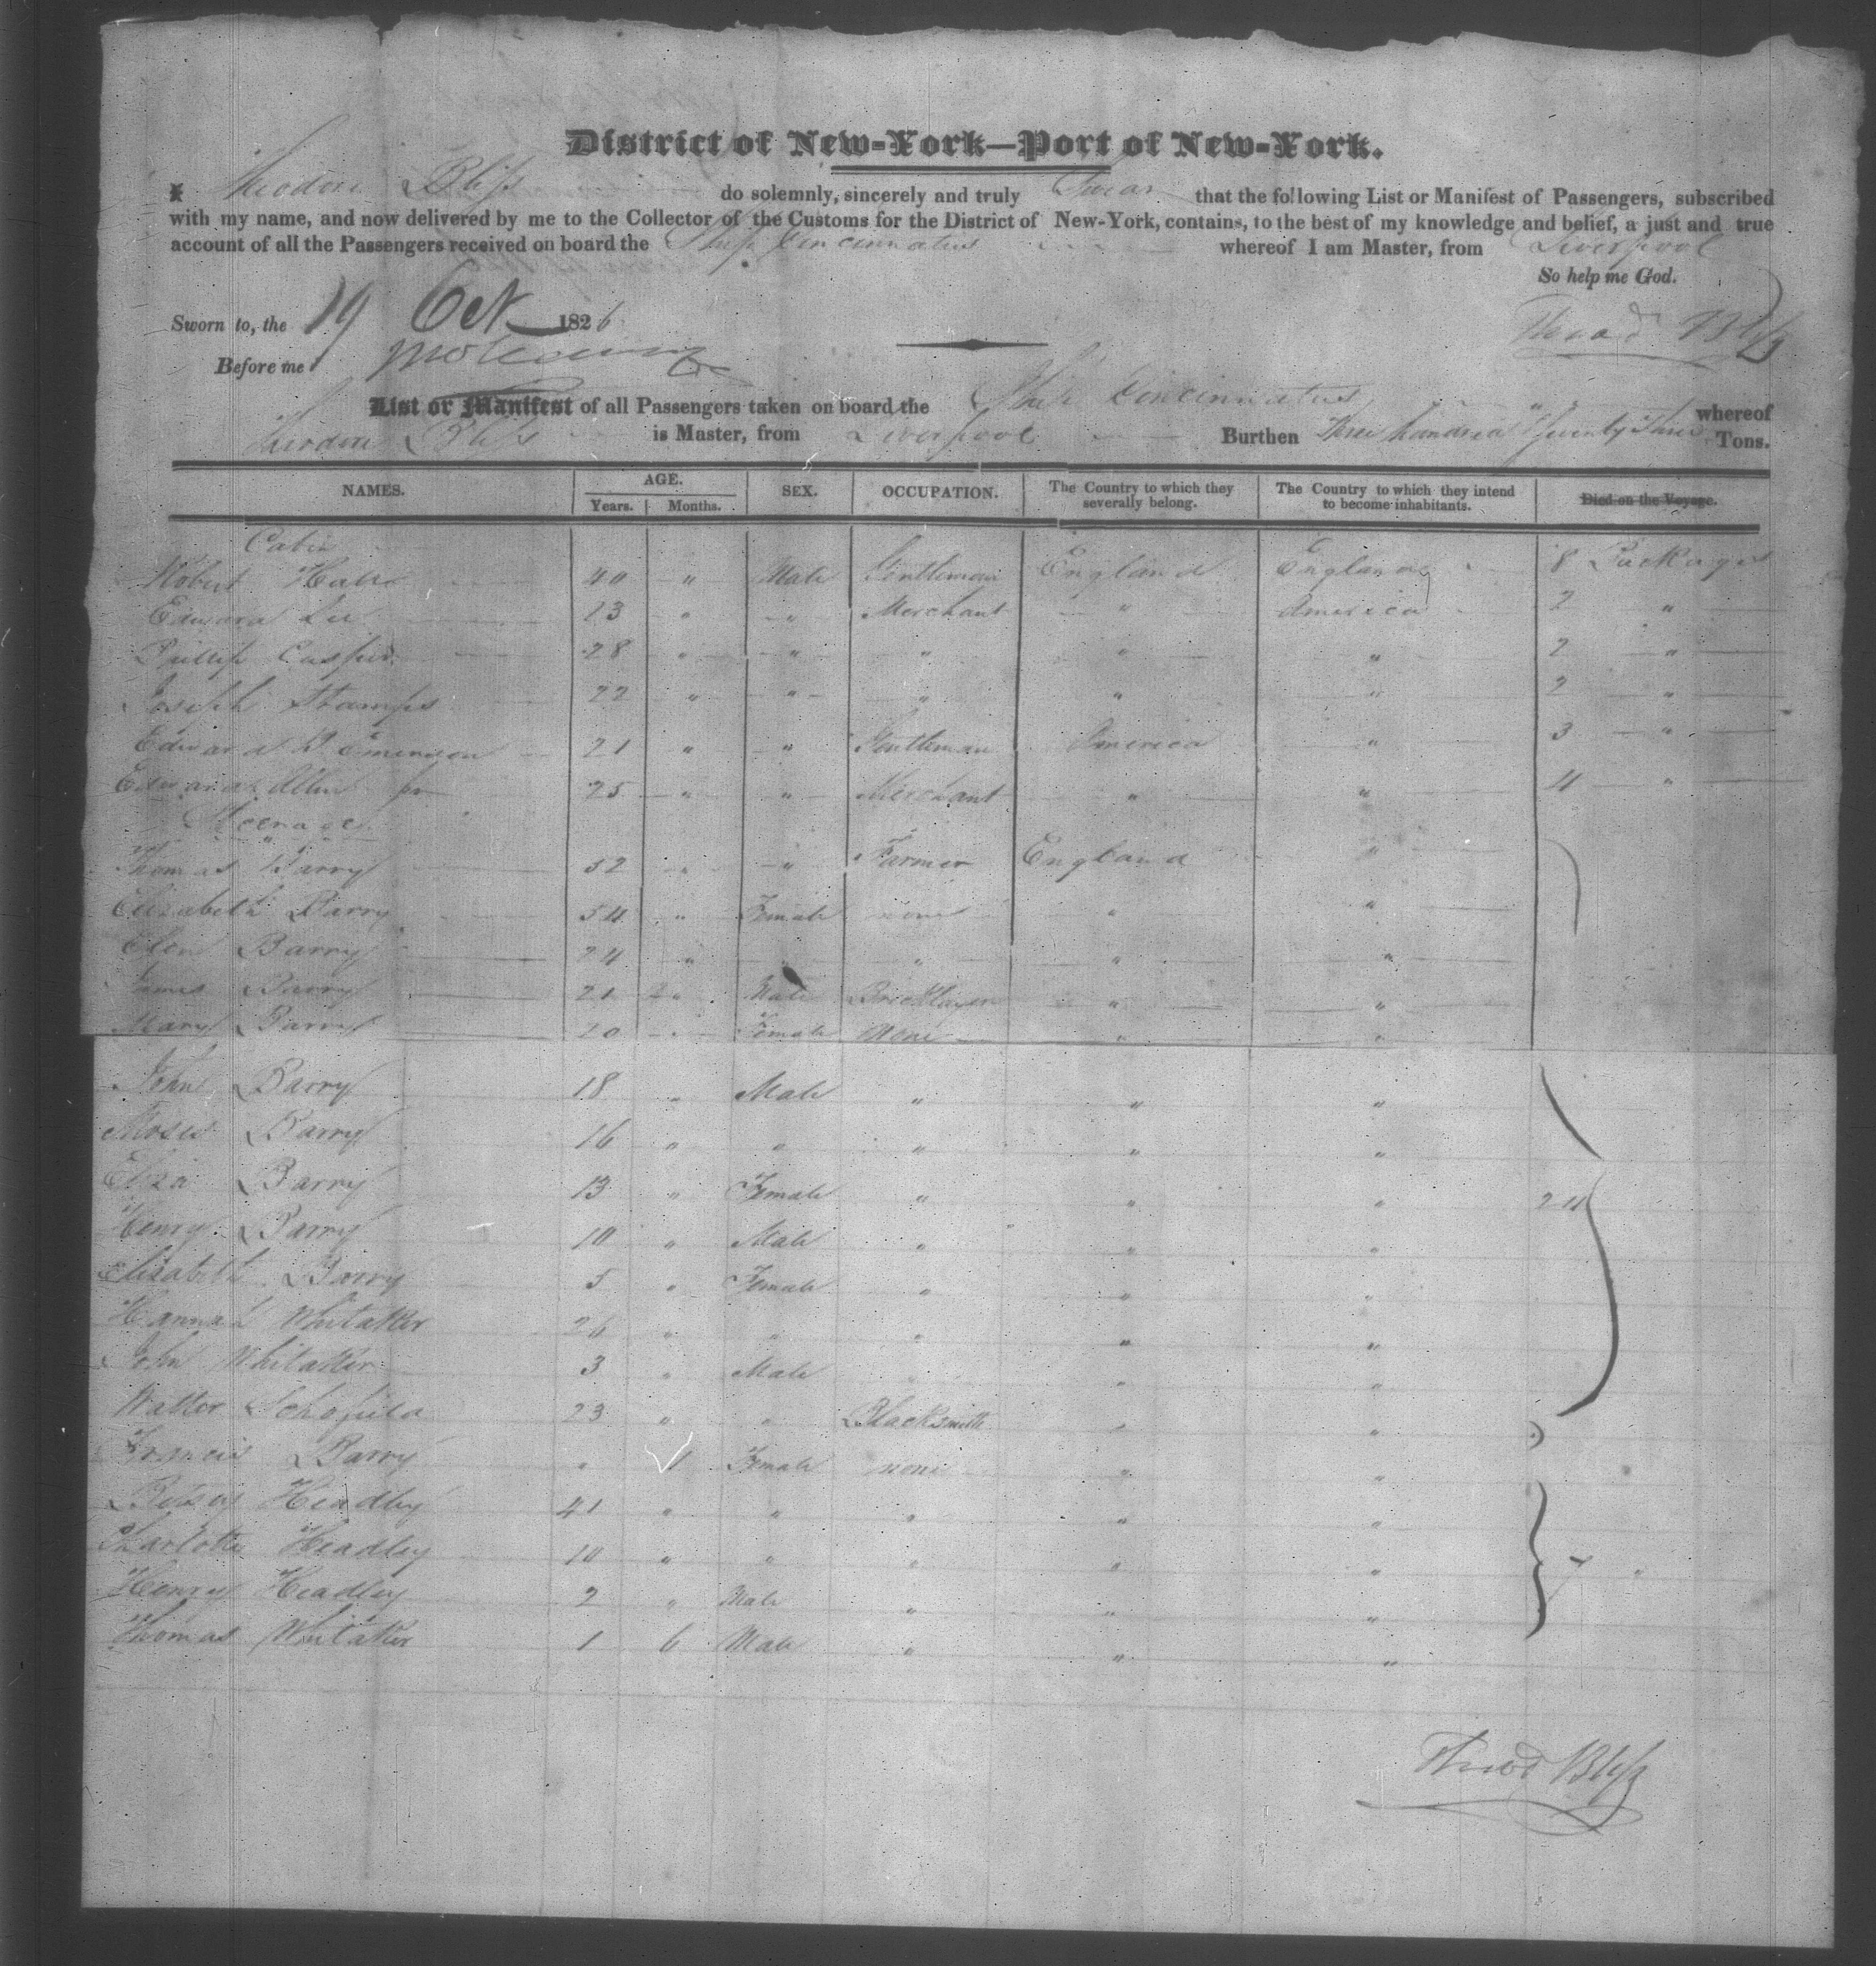 District of New-York—Port of New-York.
I Theodore Bliss do solemnly, sincerely and truly Swear that the following List or Manifest of Passengers, subscribed
with my name, and now delivered by me to the Collector of the Customs for the District of New-York, contains, to the best of my knowledge and belief, a just and true
account of all the Passengers received on board the Ship Cincinnatus whereof I am Master, from Liverpool
So help me God.
Sworn to, the 19 Oct 1826
Theod Bliss
Before me
List or Manifest of all Passengers taken on board the Ship Cincinnatus whereof
Theodore Bliss is Master, from Liverpool Burthen Three hundred & Seventy Three Tons.
NAMES. AGE. SEX. OCCUPATION. The Country to which they severally belong. The Country to which they intend to become inhabitants. Died on the Voyage.
Years. Months.
Cabin
Robert 40 " Male Gentleman England England 8 Packages
Edward Lee 13 " " Merchant " America 2 "
Phillip 28 " " " " " 2 "
Joseph Stamps 22 " " " " " 2 "
Edward Emerson 21 " " Gentleman America " 3 "
Edward Allen jr 25 " " Merchant " " 4 "
Steerage
Thomas Barry 52 " " Farmer England "
Elizabeth Barry 54 " Female none " "
Elen Barry 24 " " " " "
James Barry 21 " Male Bricklayer " "
Mary Barry 20 " Female None " "
John Barry 18 " Male " " "
Moses Barry 16 " " " " "
Eliza Barry 13 " Female " " " 24
Henry Barry 10 " Male " " "
Elizabeth Barry 5 " Female " " "
Hannah Whitaker 26 " " " " "
John Whitaker 3 " Male " " "
Walter Schofield 23 " " Blacksmith " "
Francis Barry " 1 Female none " "
Betsey Headley 41 " " " " "
Charlotte Headley 10 " " " " " 7 "
Henry Headley 2 " Male " " "
Thomas Whitaker 1 6 Male " " "
Theod Bliss